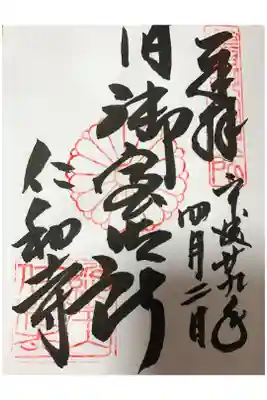 奉拝
平成廿九年
四月二日
旧御室御所
仁和寺